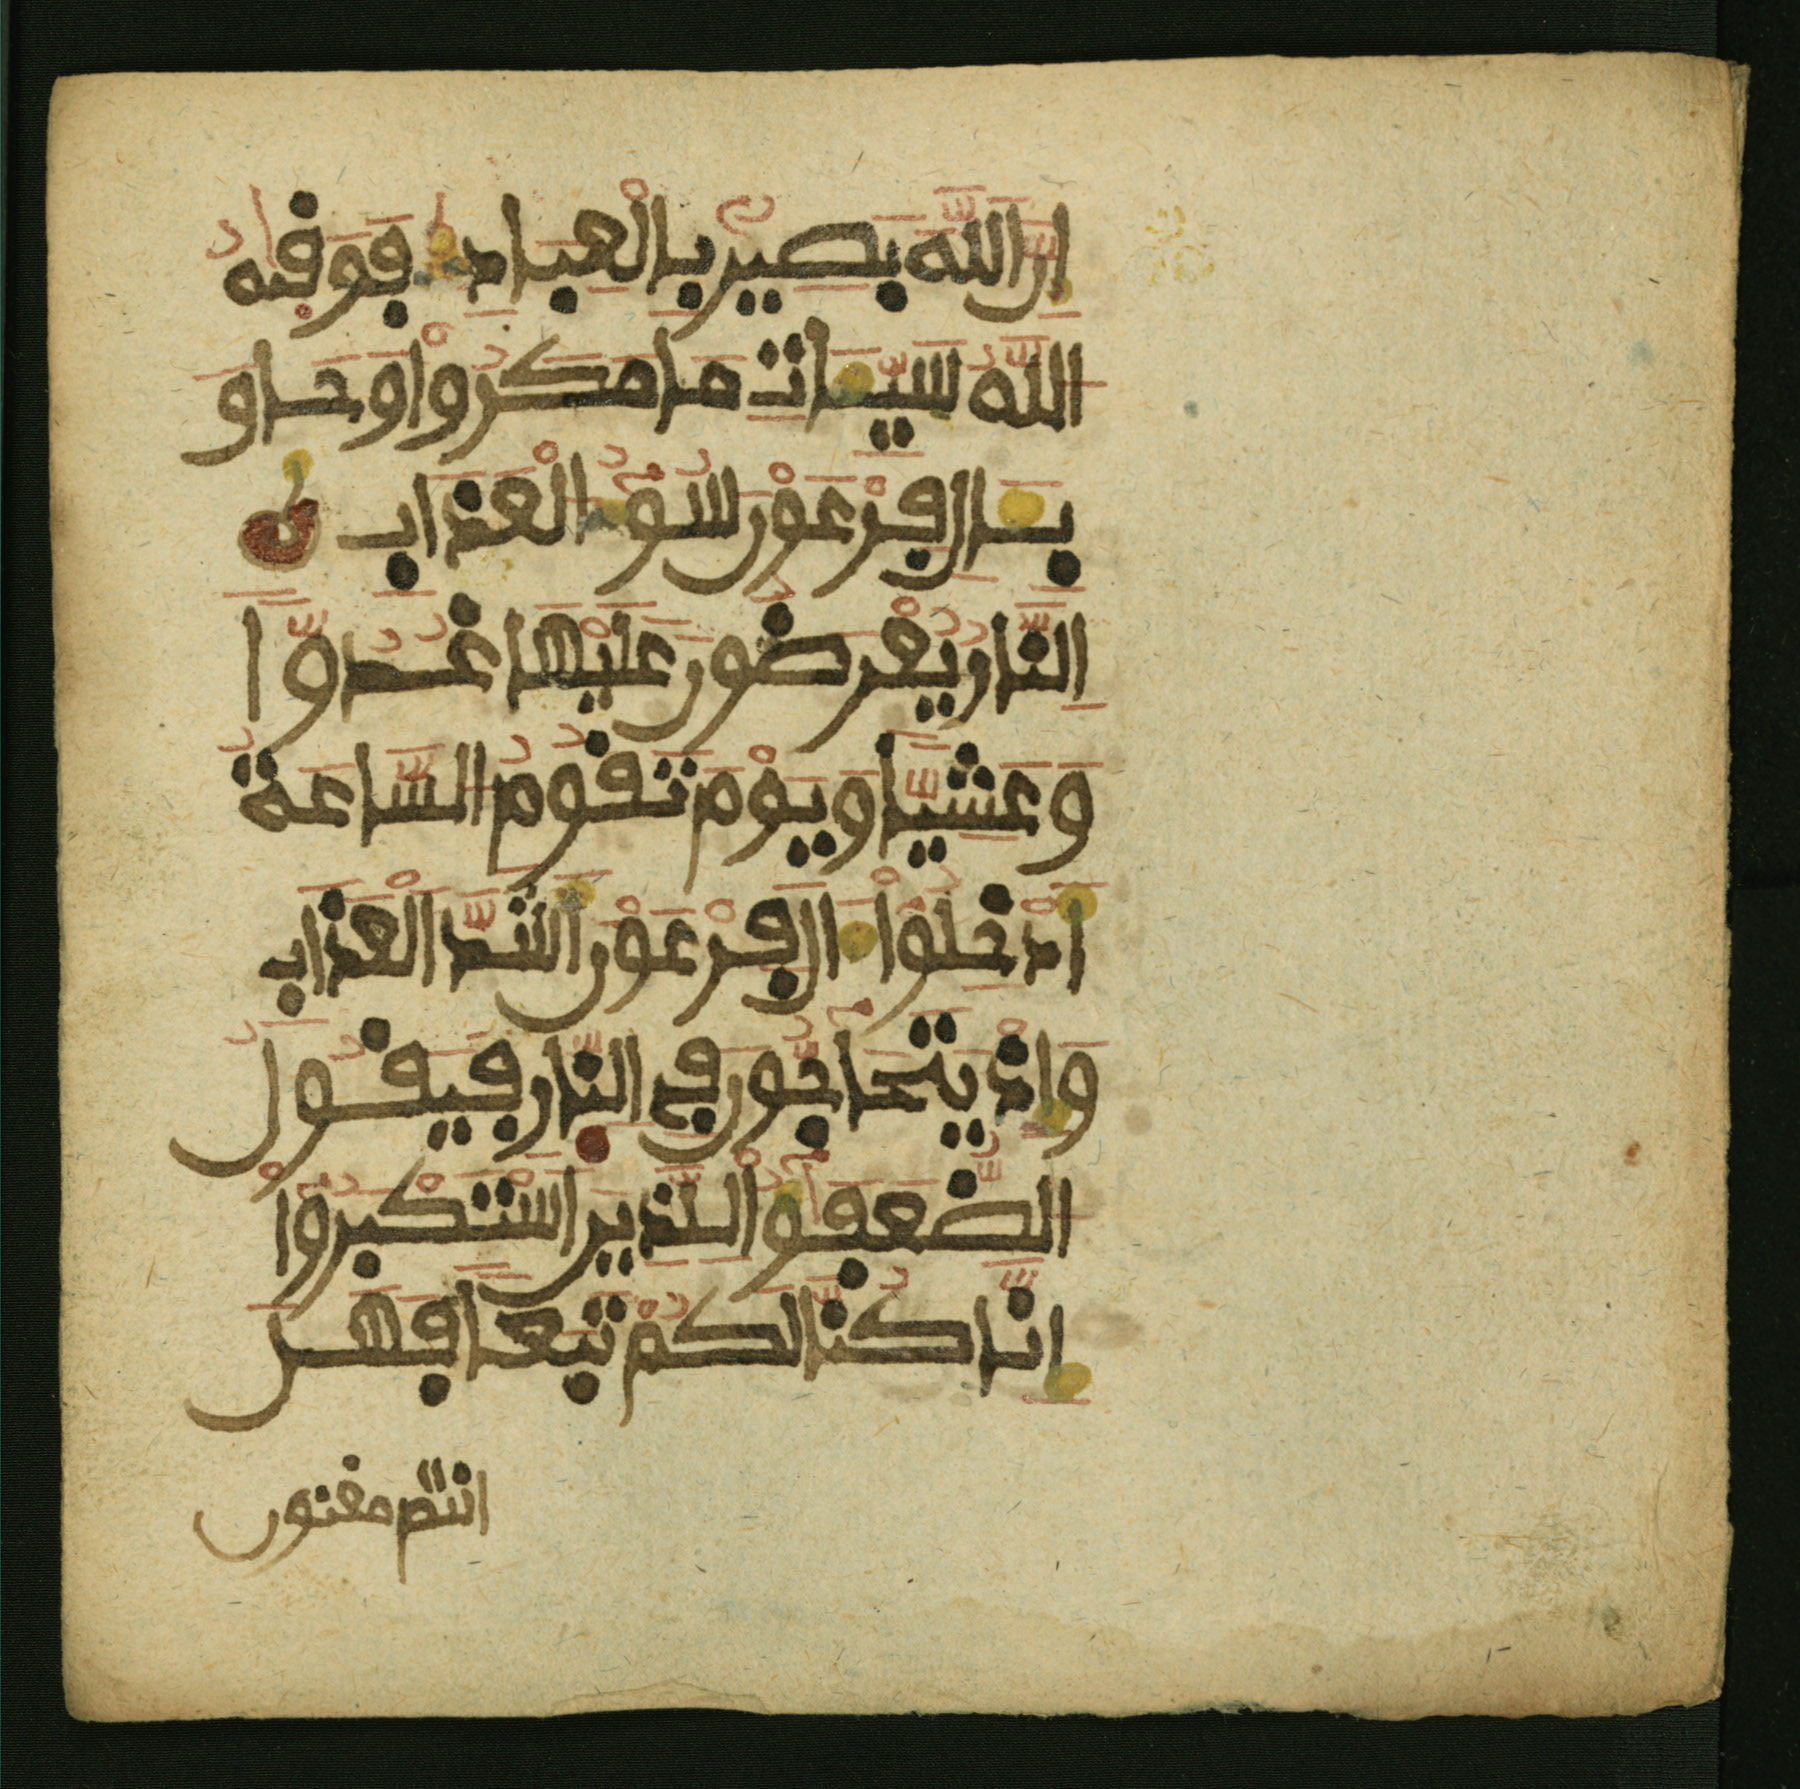 إِنَّ اللَّهَ بَصِيرٌ بِالْعِبَادِ فَوَقٰىهُ
اللَّهُ سَيِّـَٔاتِ مَا مَكَرُواْ وَحَاقَ
بِـَٔالِ فِرْعَوْنَ سُوٓءُ الْعَذَابِ
النَّارُ يُعْرَضُونَ عَلَيْهَا غُدُوّاً
وَعَشِيّاً وَيَوْمَ تَقُومُ السَّاعَةُ
أَدْخِلُوٓاْ ءَالَ فِرْعَوْنَ أَشَدَّ الْعَذَابِ
وَإِذْ يَتَحَآجُّونَ فِي النَّارِ فَيَقُولُ
الضُّعَفَٰٓؤُاْ لِلَّذِينَ اسْتَكْبَرُوٓاْ
إِنَّا كُنَّا لَكُمْ تَبَعاً فَهَلَ
انتم مغنون